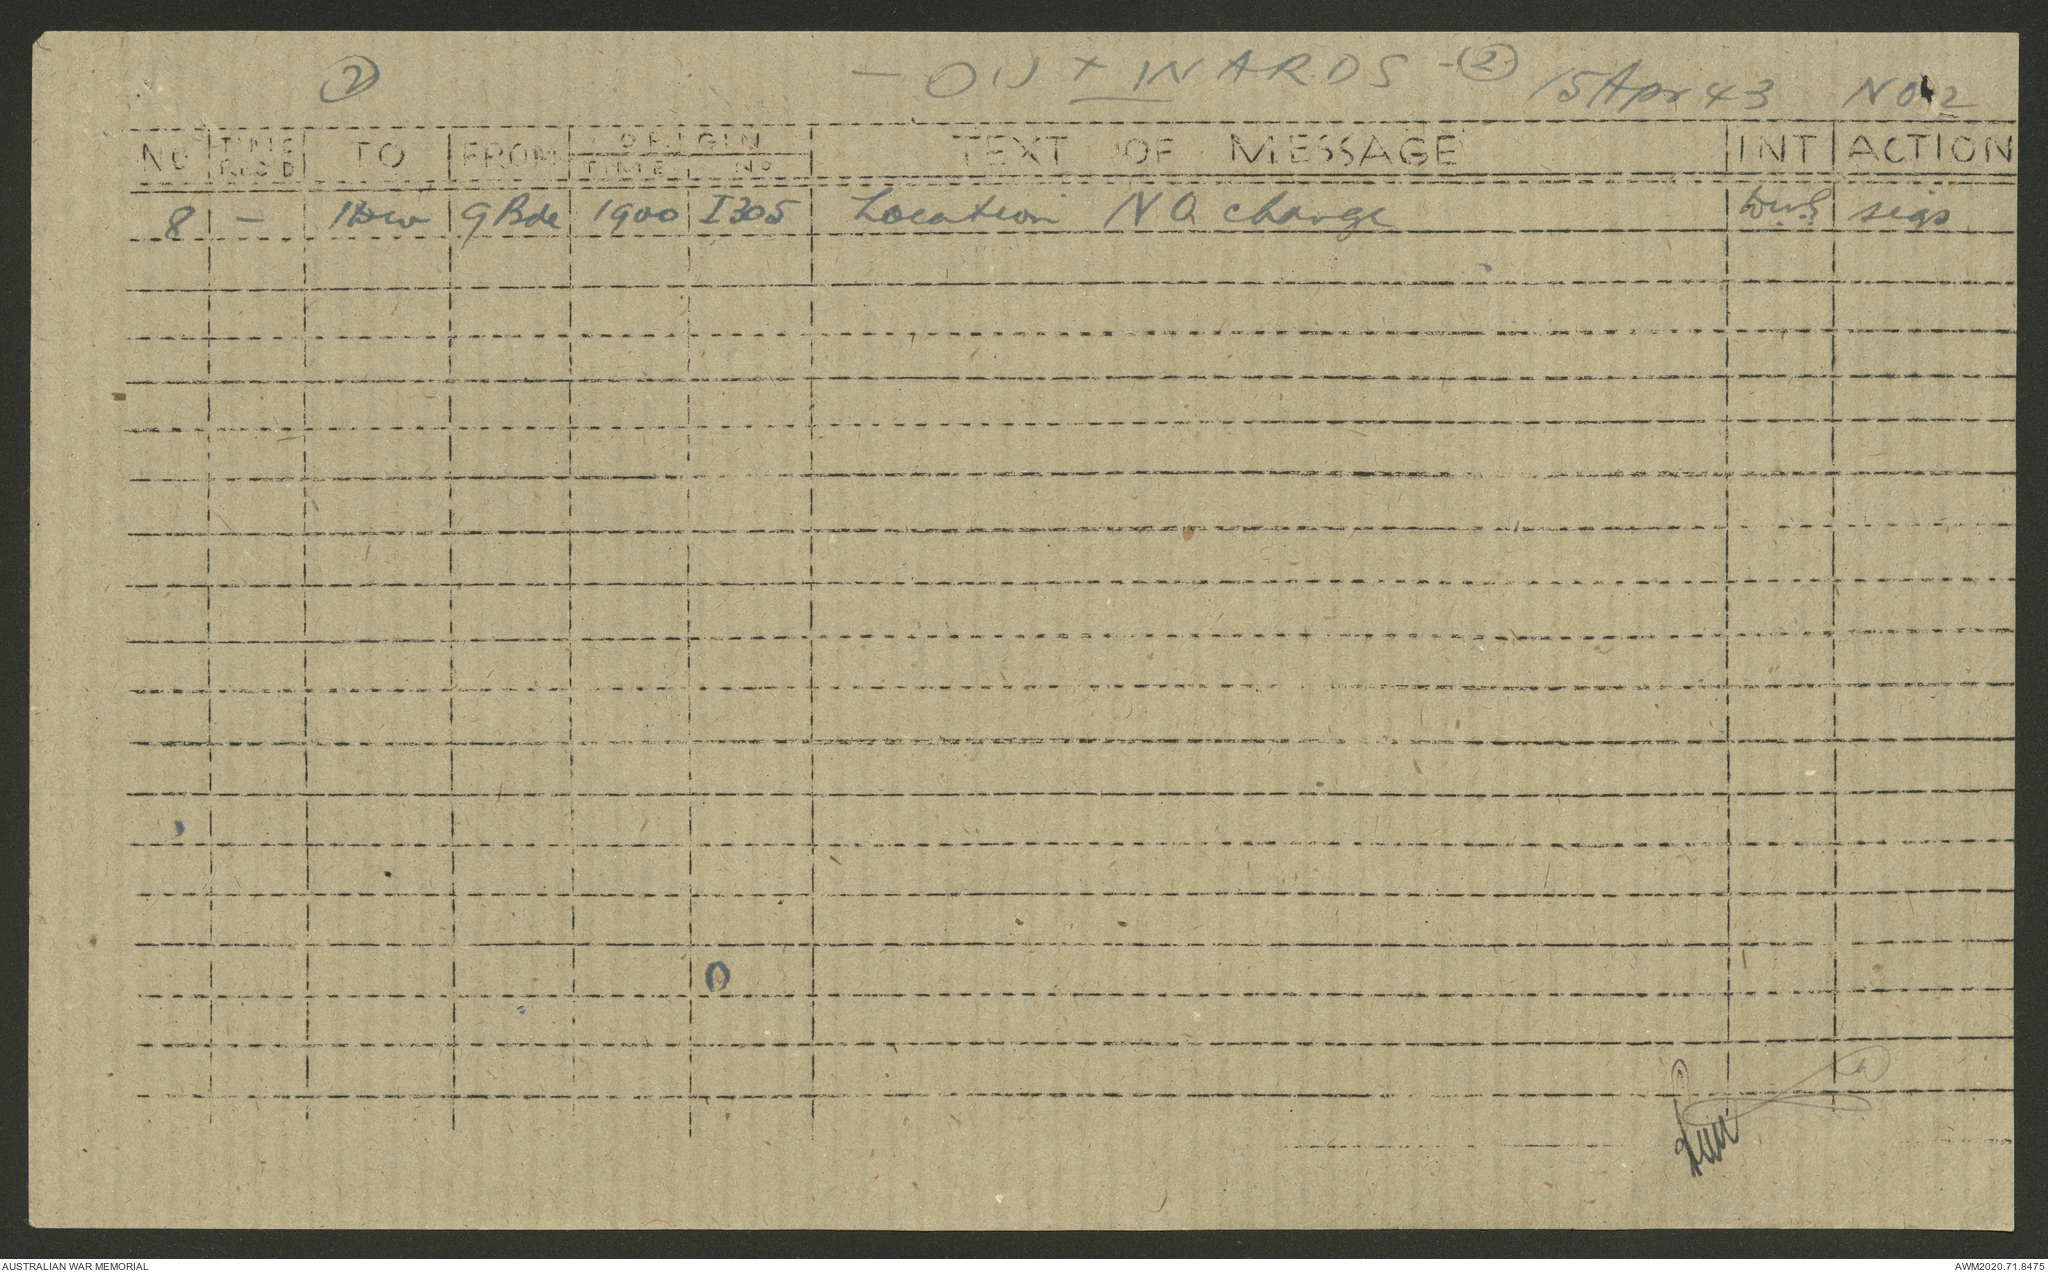 ② — OUT INARDS - ② 15 Apr 43 NO 2
NO TIME REC'D TO FROM ORIGIN TIME NO TEXT OF MESSAGE INT ACTION
8 — 11 Div 9 Bde 1900 I305 Location NO change sigs
AUSTRALIAN WAR MEMORIAL AWM2020.71.8475